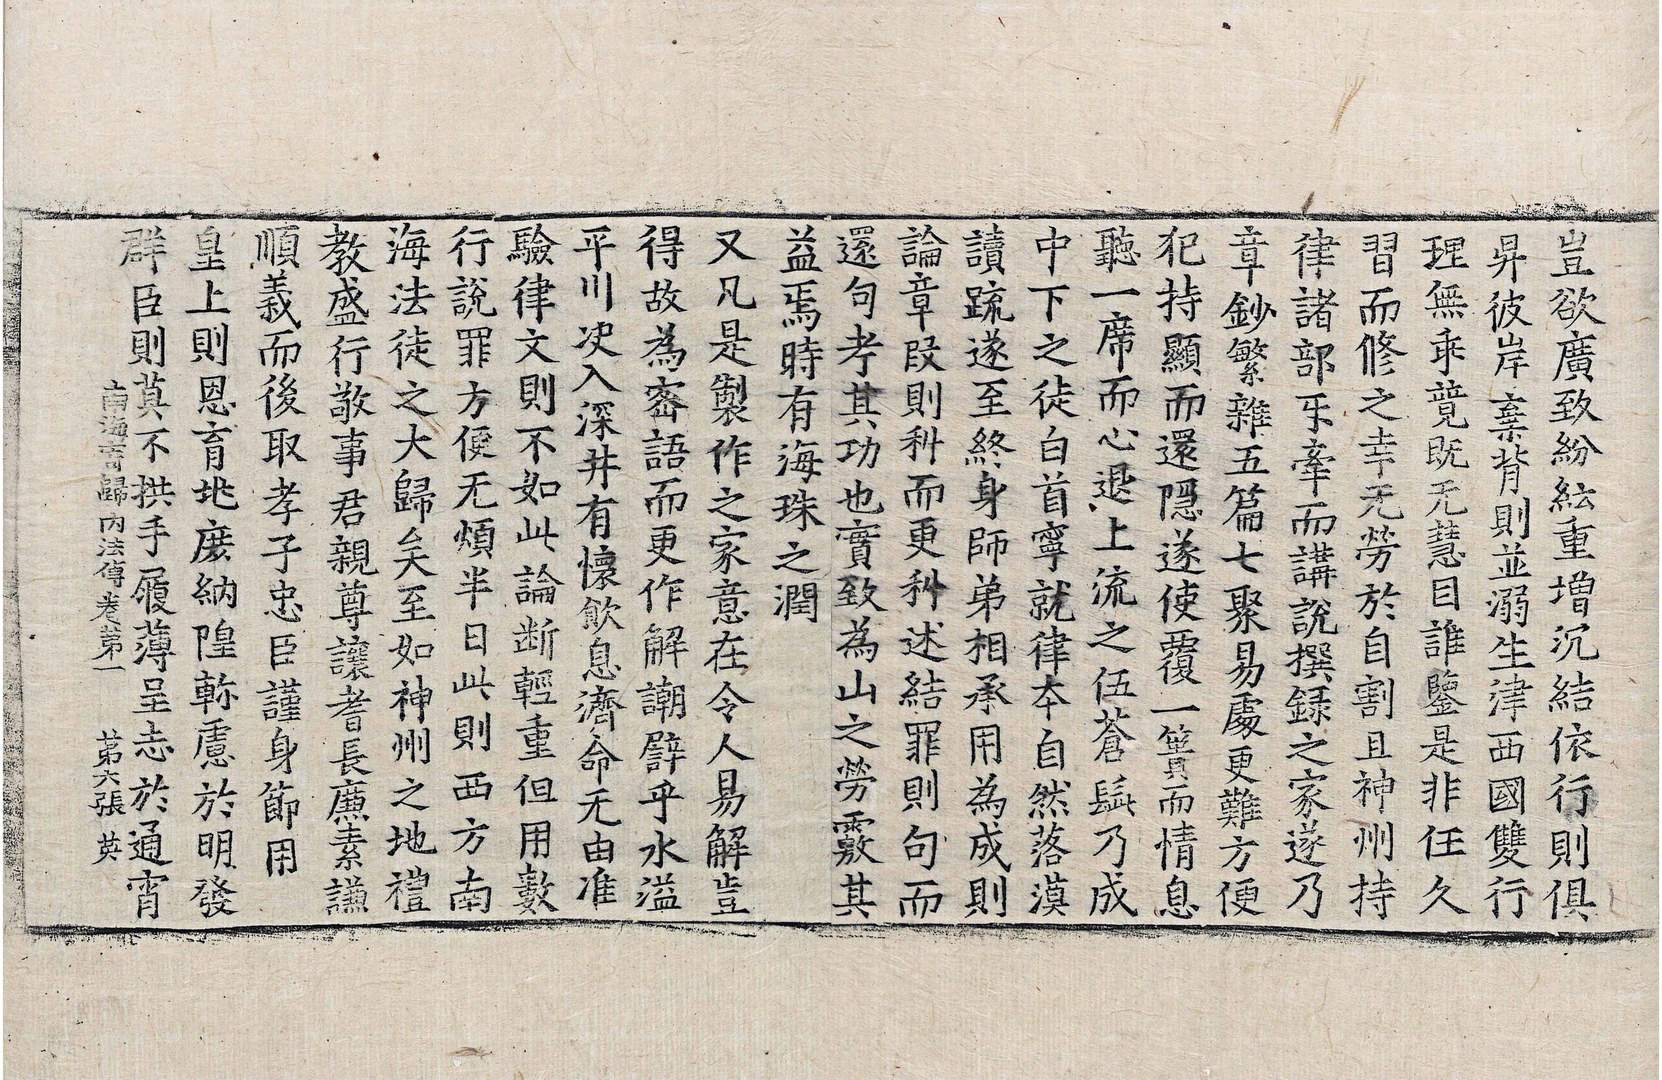 豈欲廣致紛紜重增沉結依行則俱
昇彼岸棄背則並溺生津西國雙行
理無乖競既无慧目誰鑒是非任久
習而修之幸无勞於自割且神州持
律諸部牙牽而講說撰録之家遂乃
章鈔繁雜五篇七聚易處更難方便
犯持顯而還隱遂使覆一簣而情息
聽一席而心退上流之伍蒼髭乃成
中下之徒白首寧就律本自然落漠
讀疏遂至終身師弟相承用為成則
論章段則科而更科述結罪則句而
還句考其功也實致為山之勞覈其
益焉時有海珠之潤
又凡是製作之家意在令人易解豈
得故為密語而更作解謿譬乎水溢
平川決入深井有懷飲息濟命无由准
驗律文則不如此論断輕重但用數
行說罪方便无煩半日此則西方南
海法徒之大歸矣至如神州之地禮
教盛行敬事君親尊讓耆長廉素謙
順義而後取孝子忠臣謹身節用
皇上則恩育兆庶納隍軫慮於明發
群臣則莫不拱手履薄呈志於通宵
南海寄歸內法傳卷第一 第六張 英